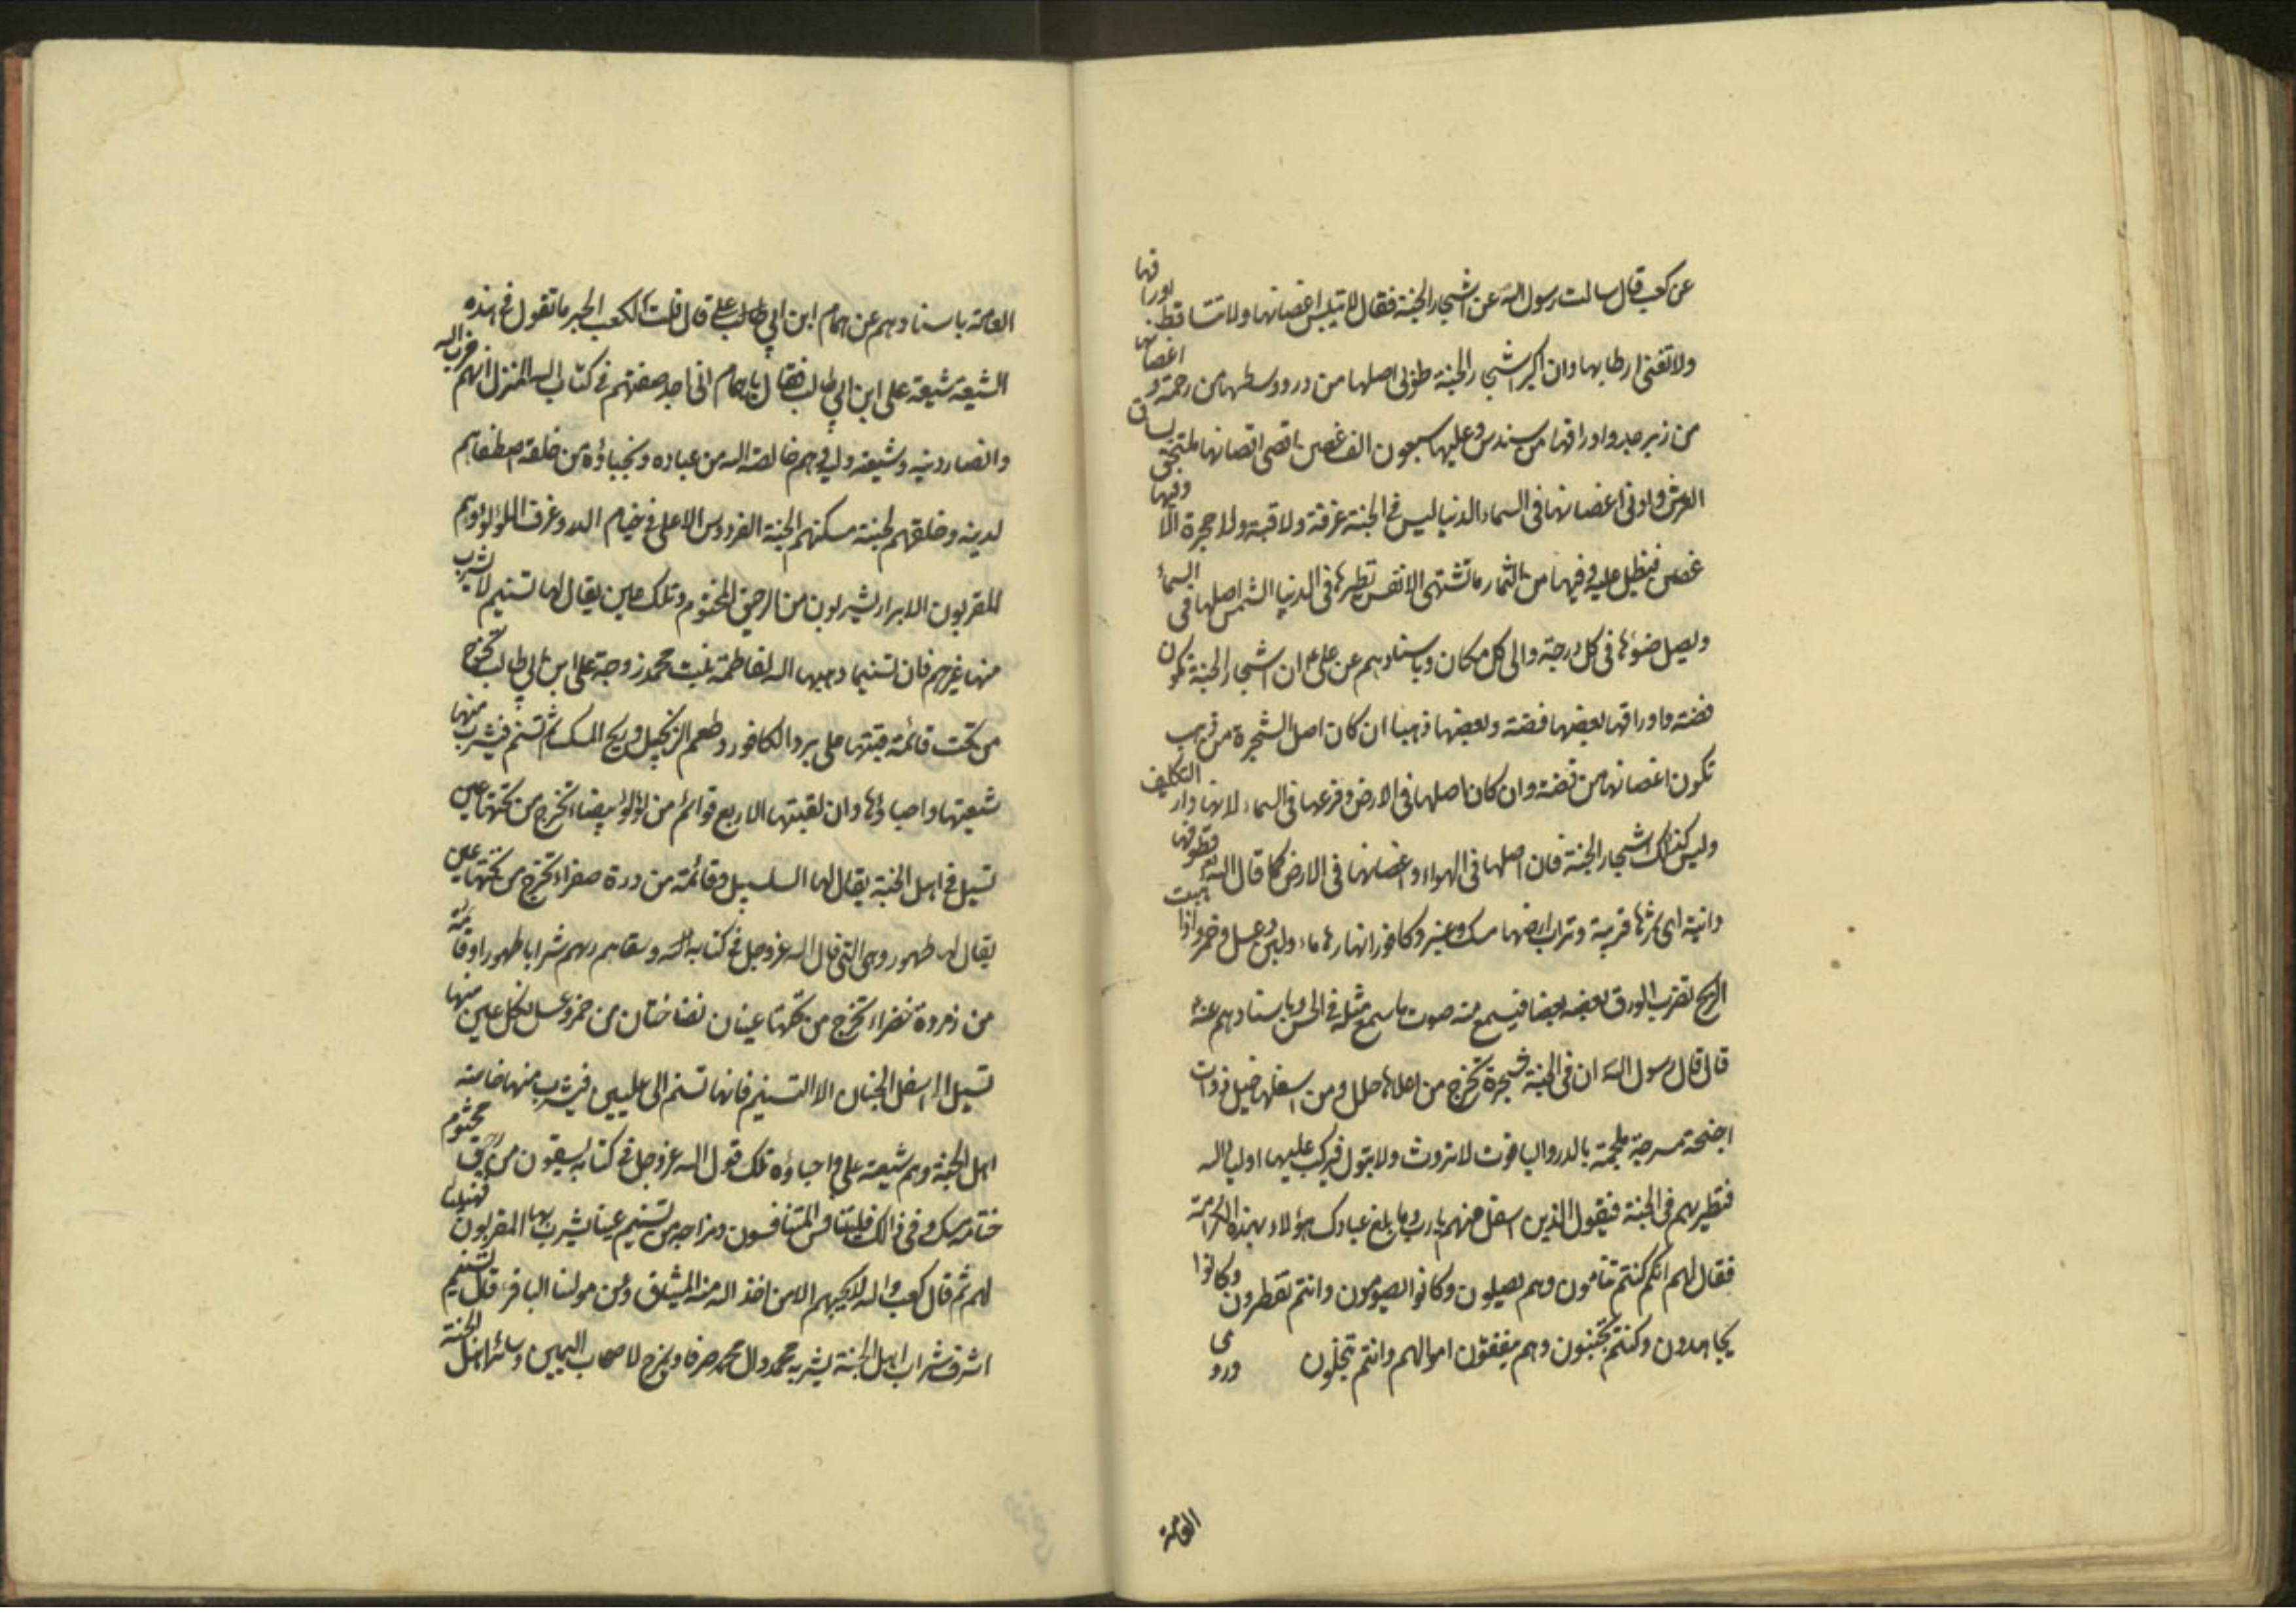 عن كعب قال سالت رسول الله عن اشجار الجنة فقال لا تيبس اغصانها ولا تتساقط اوراقها
ولا تفنى ارطابها وان اكبر اشجار الجنة طوبى اصلها من در ووسطها من رحمة واغصانها
من زبرجد واوراقها من سندس وعليها سبعون الف غصن اقصى اقصانها ملتحق بساق
العرش وادنى اغصانها فى السماء الدنيا ليس فى الجنة غرفة ولا قبة ولا حجرة الا وفيها
غصن فيظل عليه وفيها من الثمار ما تشتهى الانفس نظيرها فى الدنيا الشمس اصلها فى السماء
ويصل ضوئها فى كل درجة والى كل مكان وباسنادهم عن على ع ان اشجار الجنة تكون
فضة واوراقها بعضها فضة وبعضها ذهبا ان كان اصل الشجرة من ذهب
تكون اغصانها من فضة وان كان اصلها فى الارض وفرعها فى السماء لانها دار التكليف
وليس كذلك اشجار الجنة فان اصلها فى الهواء واغصانها فى الارض كما قال الله قطوفها
دانية اى ثمرتها قريبة وتراب ارضها مسك وعنبر وكافور انهارها ماء ولبن وعسل وخمر واذا هبت
الريح تضرب الورق بعضه بعضا فيسمع منه صوت ما سمع مثله فى الحسن وباسنادهم عنه
قال قال رسول الله ان فى الجنة شجرة تخرج من اعلاها حلل ومن اسفلها خيل ذوات
اجنحة مسرجة ملجمة بالدر والياقوت لا تروث ولا تبول فيركب عليها اولياء الله
فتطير بهم فى الجنة فيقول الذين اسفل منهم يا رب وما بلغ عبادك هؤلاء بهذه الكرامة
فقال لهم انكم كنتم تنامون وهم يصيلون وكانوا يصومون وانتم تفطرون وكانوا
يجاهدون وكنتم تجبنون وهم ينفقون اموالهم وانتم تبخلون وروى
العامة
العامة باسنادهم عن همام ابن ابي طالب على قال قلت لكعب الحبر ما تقول فى هذه
الشيعة شيعة على ابن ابي طالب فقال يا همام انى اجد صفتهم فى كتاب الله المنزل انهم حزب الله
وانصار دينه وشيعة وليه وهم خالصة الله من عباده ونجباؤه من خلقه اصطفاهم
لدينه وخلقهم لجنته مسكنهم الجنة الفردوس الاعلى فى خيام الدر وغرف اللؤلؤ وهم
المقربون الابرار يشربون من الرحيق المختوم وتلك عين يقال لها تسنيم لا يشرب
منها غيرهم فان تسنيما وهبها الله لفاطمة بنت محمد زوجة على ابن ابي طالب تخرج
من تحت قائمة قبتها على برد الكافور وطعم الزنجبيل وريح المسك ثم تسنم فيشرب منها
شيعتها واحباؤها وان لقبتها الاربع قوائم من لؤلؤ بيضاء تخرج من تحتها عين
تسيل فى اهل الجنة يقال لها السلسبيل وقائمة من درة صفراء تخرج من تحتها عين
يقال لها طهور وهى التى قال الله عز وجل فى كتابه وسقاهم ربهم شرابا طهورا وقائمة
من زمردة خضراء تخرج من تحتها عينان نضاختان من خمر وعسل لكل عين منها
تسيل الى اسفل الجنان الا التسنيم فانها تسنم الى عليين فيشرب منها خاصة
اهل الجنة وهم شيعة على واحباؤه تلك قول الله عز وجل فى كتابه يسقون من رحيق مختوم
ختامه مسك وفى ذالك فليتنافس المتنافسون ومزاجه من تسنيم عينا يشرب بها المقربون فهنيئا
لهم ثم قال كعب والله لا يحبهم الا من اخذ الله منه الميثاق وعن مولنا الباقر ع قال تسنيم
اشرف شراب اهل الجنة يشربه محمد وال محمد صرفا ويمزج لاصحاب اليمين وسائر اهل الجنة